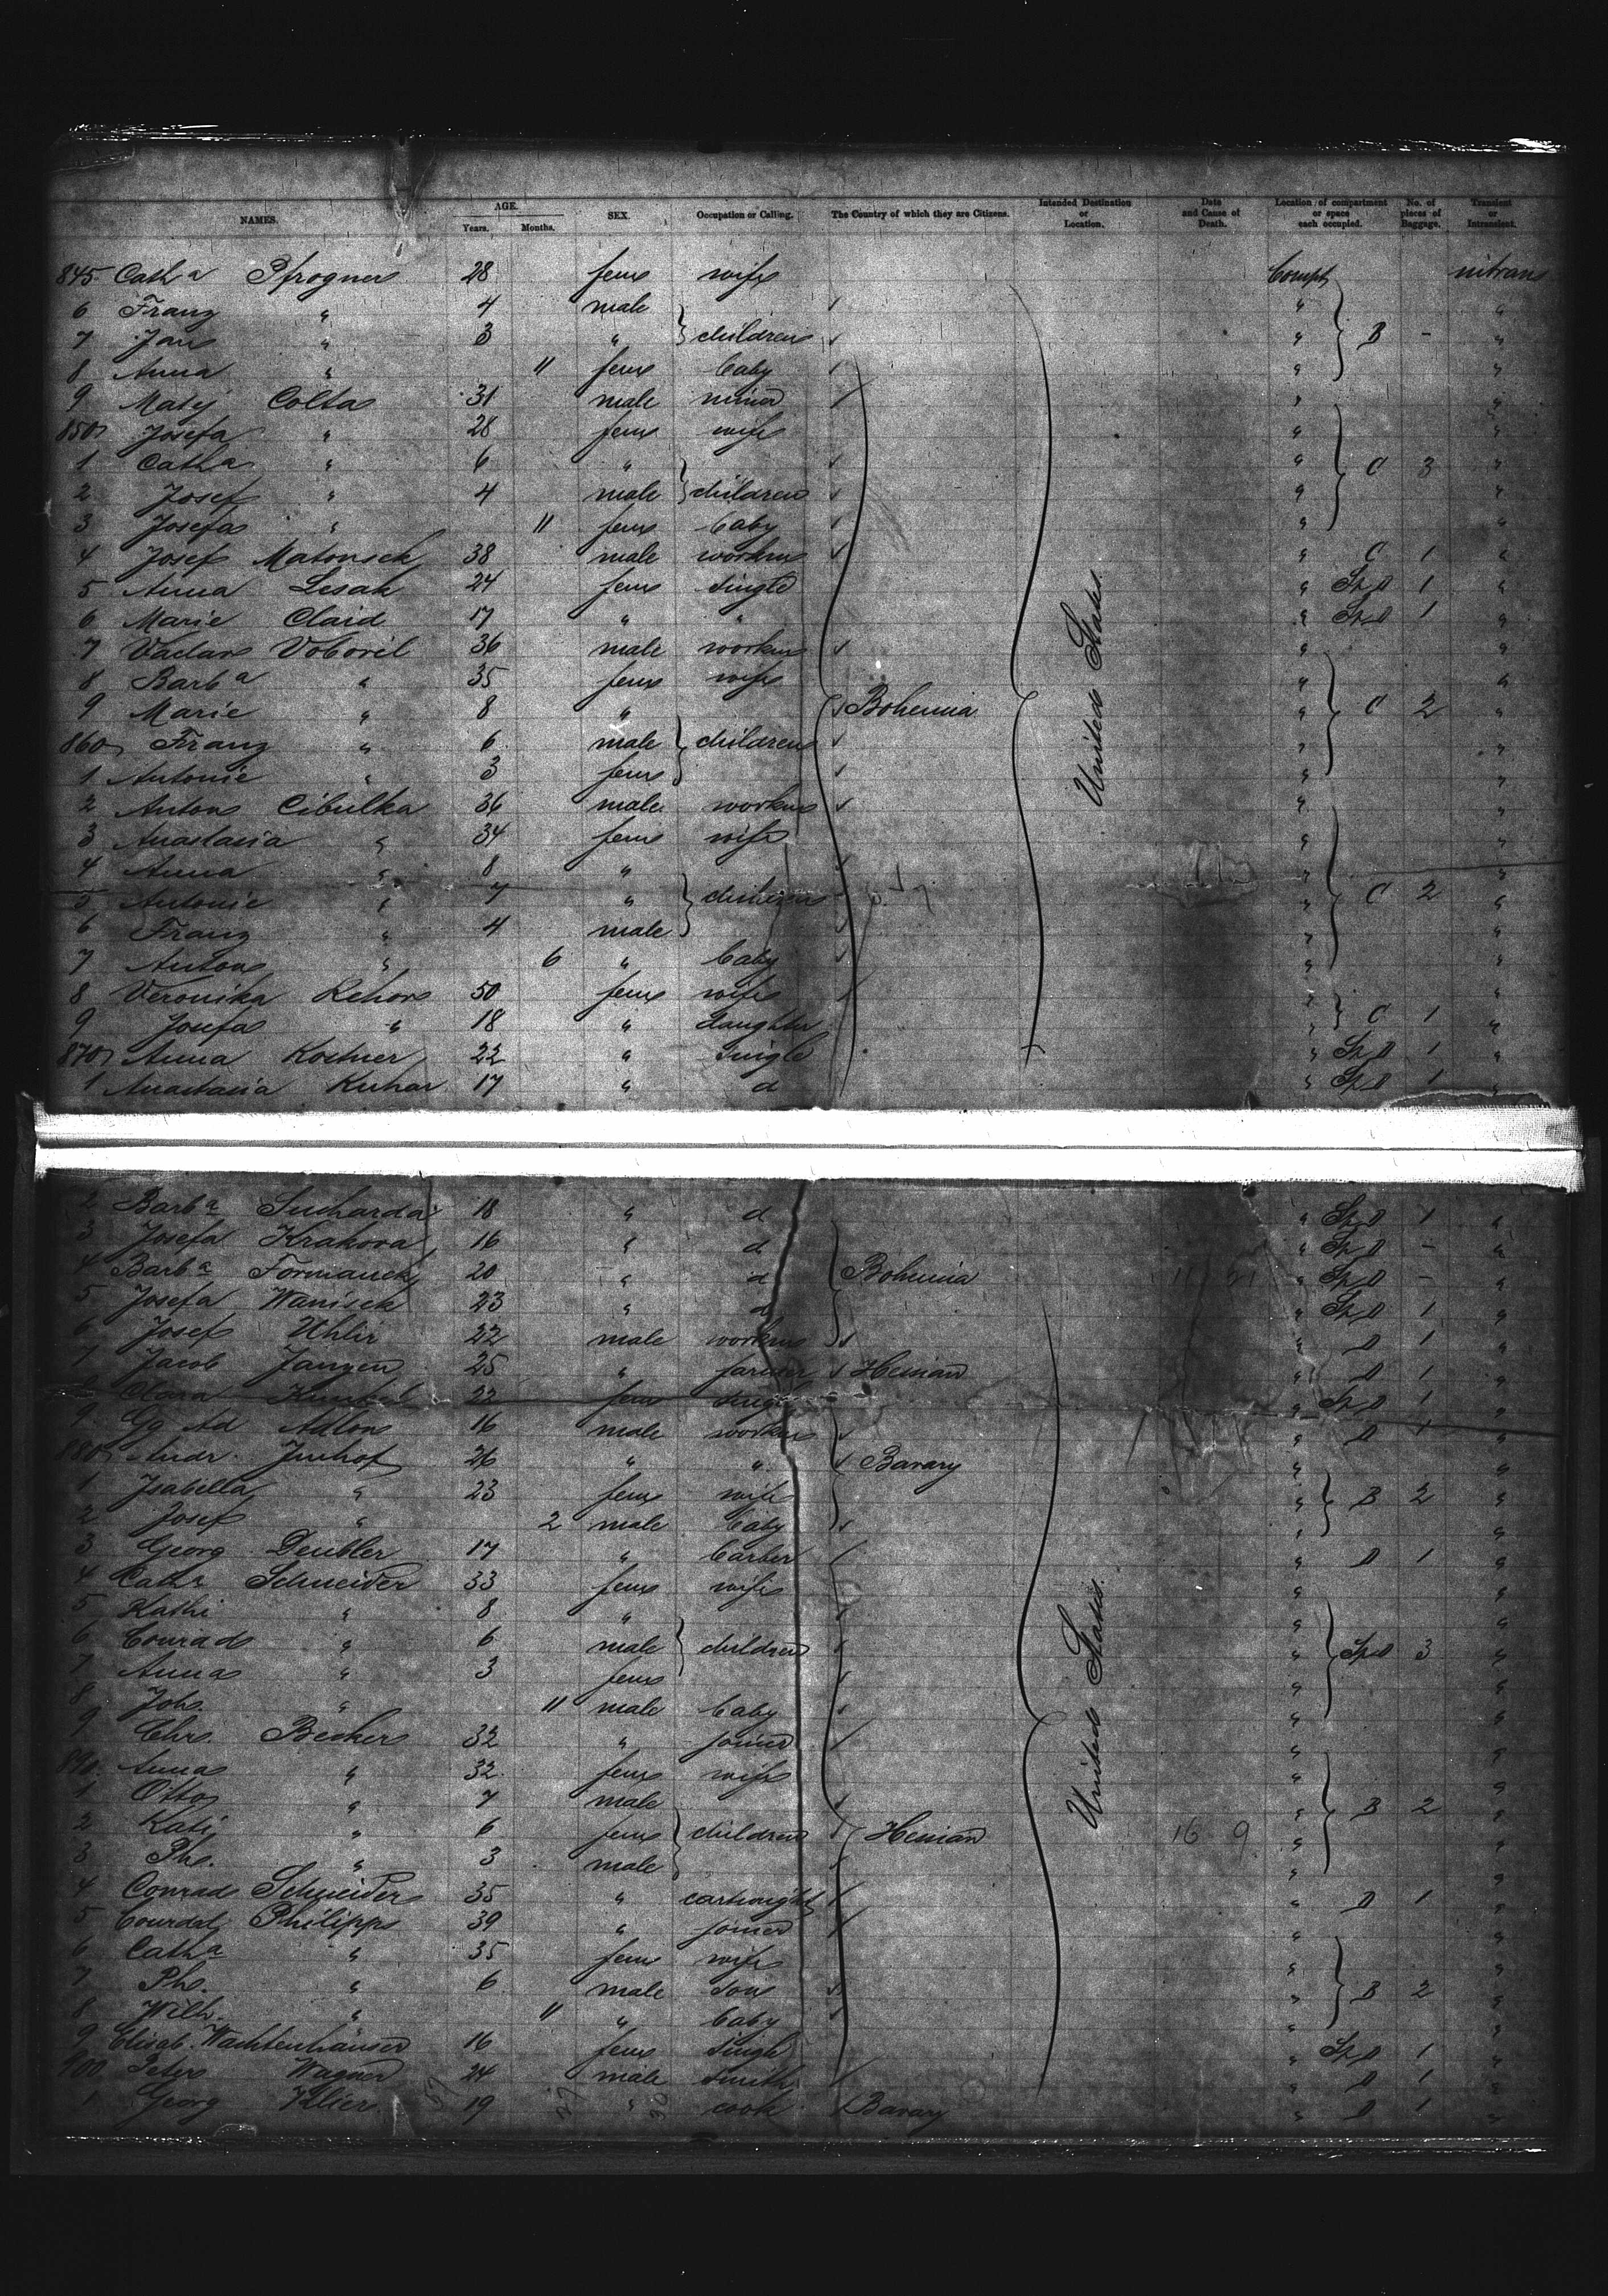 NAMES. AGE. Years. Months. SEX. Occupation or Calling. The Country of which they are Citizens. Intended Destination or Location. Date and Cause of Death. Location of compartment or space each occupied. No. of pieces of Baggage. Transient or Intransient.
845 Cath a Pfrogner 28 fem wife Comp
6 Franz " 4 male "
7 Jan " 3 " children " B - "
8 Anna " 11 fem baby " "
9 Matej Colta 31 male miner " "
850 Josefa " 28 fem wife " "
1 Cath a " 6 " " C 3 "
2 Josef " 4 male children " "
3 Josefa " 11 fem baby " "
4 Josef Matousek 38 male workm " C 1 "
5 Anna Lesak 24 fem single " Sp D 1 "
6 Marie Claid 17 " " " Sp D 1 "
7 Vaclav Voboril 36 male workm " "
8 Barb a " 35 fem wife " "
9 Marie " 8 " Bohemia United States " C 2 "
860 Franz " 6 male children " "
1 Antonie " 3 fem " "
2 Anton Cibulka 36 male workm " "
3 Anastasia " 34 fem wife " "
4 Anna " 8 " " "
5 Antonie " 7 " children " C 2 "
6 Franz " 4 male " "
7 Anton " 6 " baby " "
8 Veronika Rehor 50 fem wife " "
9 Josefa " 18 " daughter " C 1 "
870 Anna Kostner 22 " single " Sp D 1 "
1 Anastasia Kuhar 17 " d " Sp D 1 "
2 Barb a Sucharda 18 " d " Sp D 1 "
3 Josefa Krakora 16 " d " Sp D - "
4 Barb a Formanek 20 " d Bohemia " Sp D - "
5 Josefa Wanisek 23 " d " Sp D 1 "
6 Josef Uhlir 22 male workm " D 1 "
7 Jacob Janzen 25 " farmer Hessian " D 1 "
Clara 22 fem single " Sp D 1 "
9 Gg Ad Adlon 16 male workm " D 1 "
880 Andr. Imhof 26 " " Bavary " "
1 Isabella " 23 fem wife " B 2 "
2 Josef " 2 male baby " "
3 Georg Deubler 17 " barber " D 1 "
4 Cath a Schneider 33 fem wife " "
5 Kathi " 8 " " "
6 Conrad " 6 male children " Sp D 3 "
7 Anna " 3 fem " "
8 Joh. " 11 male baby " "
9 Chr. Becker 32 " joiner " "
890 Anna " 32 fem wife " "
1 Otto " 7 male United States " B 2 "
2 Kati " 6 fem children Hessian 16 9 " "
3 Ph. " 3 male " "
4 Conrad Schneider 35 " cartwright " D 1 "
5 Philipp 39 " joiner " "
6 Cath a " 35 fem wife " "
7 Ph. " 6 male son " B 2 "
8 Wilh. " 11 " baby " "
9 Elisab. Wachtenhäuser 16 fem single " Sp D 1 "
900 Peter Wagner 24 male smith " D 1 "
1 Georg Klier 19 " cook Bavary " D 1 "